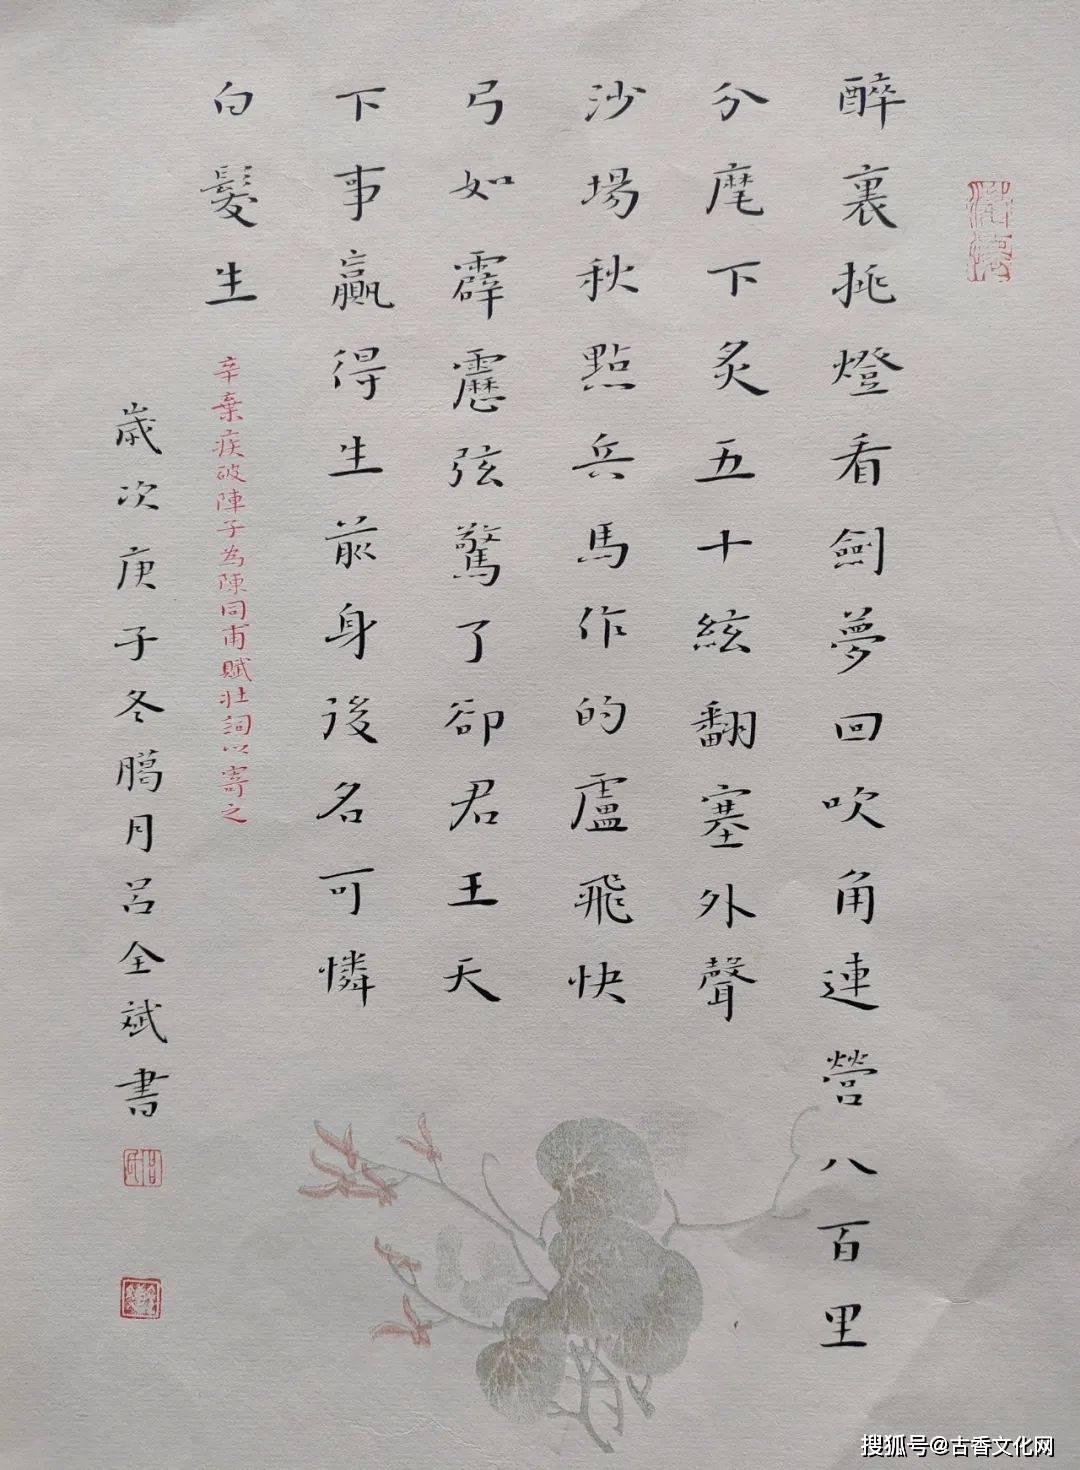 醉裏挑燈看劍夢回吹角連營八百里
分麾下炙五十絃翻塞外聲
沙場秋點兵馬作的盧飛快
弓如霹靂弦驚了卻君王天
下事贏得生前身後名可憐
白髮生
辛棄疾破陣子為陳同甫賦壯詞以寄之
歲次庚子冬臘月呂全斌書
搜狐号@古香文化网